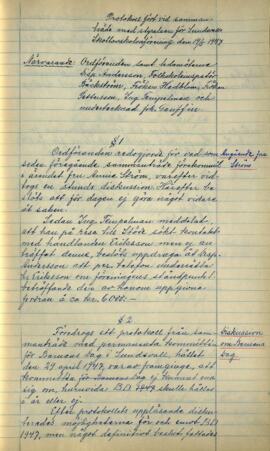 Protokoll fört vid samman-
träde med styrelsen för Sundsvalls
Skollovskoloniförening den 19/5 1947
Närvarande: Ordföranden samt ledamöterna
Disp. Andersson, Folkskoleinspektör
Bäckström, Fröken Hadblom, Fröken
Pettersson, Ing. Tempelman och
undertecknad sek.
§ 1
Ordföranden redogjorde för vad som
Angående fru
Ström
sedan föregående sammanträde förekommit
i ärendet fru Annie Ström, varefter vid-
togs en stunds diskussion. Härefter be-
slöts att för dagen ej göra något vidare
åt saken.
Sedan Ing. Tempelman meddelat
att han på resa till Stöde sökt kontakt
med handlanden Eriksson men ej an-
träffat denne, beslöts uppdraga åt disp.
Andersson att per telefon underrätta
hr Eriksson om föreningens ståndpunkt
beträffande den av honom uppgivna
fordran å ca kr. 6.000:-
§ 2
Föredrogs ett protokoll från sam-
Diskussion
om Barnens
dag
manträde med permanenta kommittén
för Barnens dag i Sundsvall, hållet
den 29 april 1947, varav framgick, att
kommittén för Barnens dag ej kunnat ena
sig om, huruvida B.D. 1947 skulle hållas
i år eller ej.
Efter protokollets uppläsande disku-
terades möjligheterna för och emot B.D.
1947, men något definitivt beslut fattades